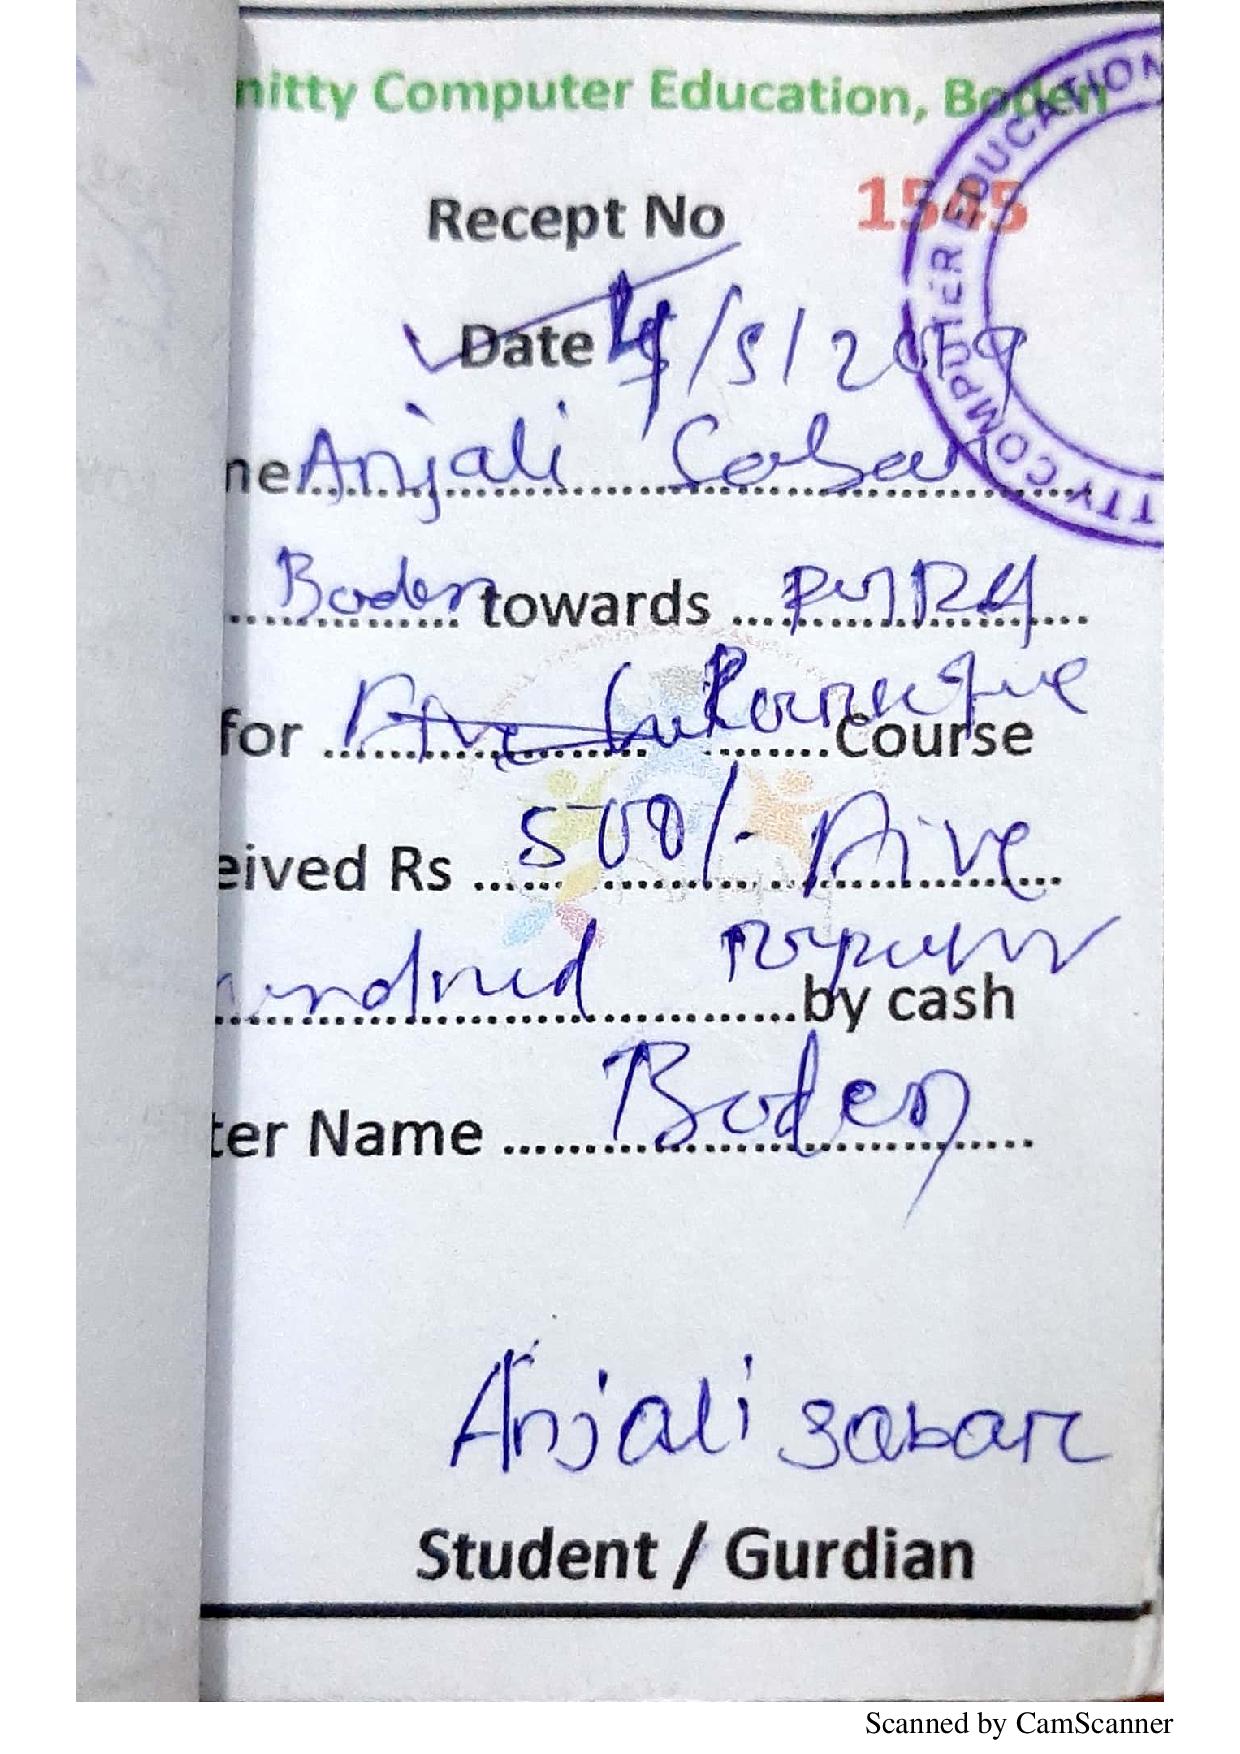 nitty Computer Education, Boden
Recept No 1545
Date 4/5/2019
me Anjali Sabar
Boden towards
for Course
eived Rs 500/- Five
undred by cash
ter Name Boden
Anjali sabar
Student / Gurdian
TTY COMPUTER EDUCATION
Scanned by CamScanner